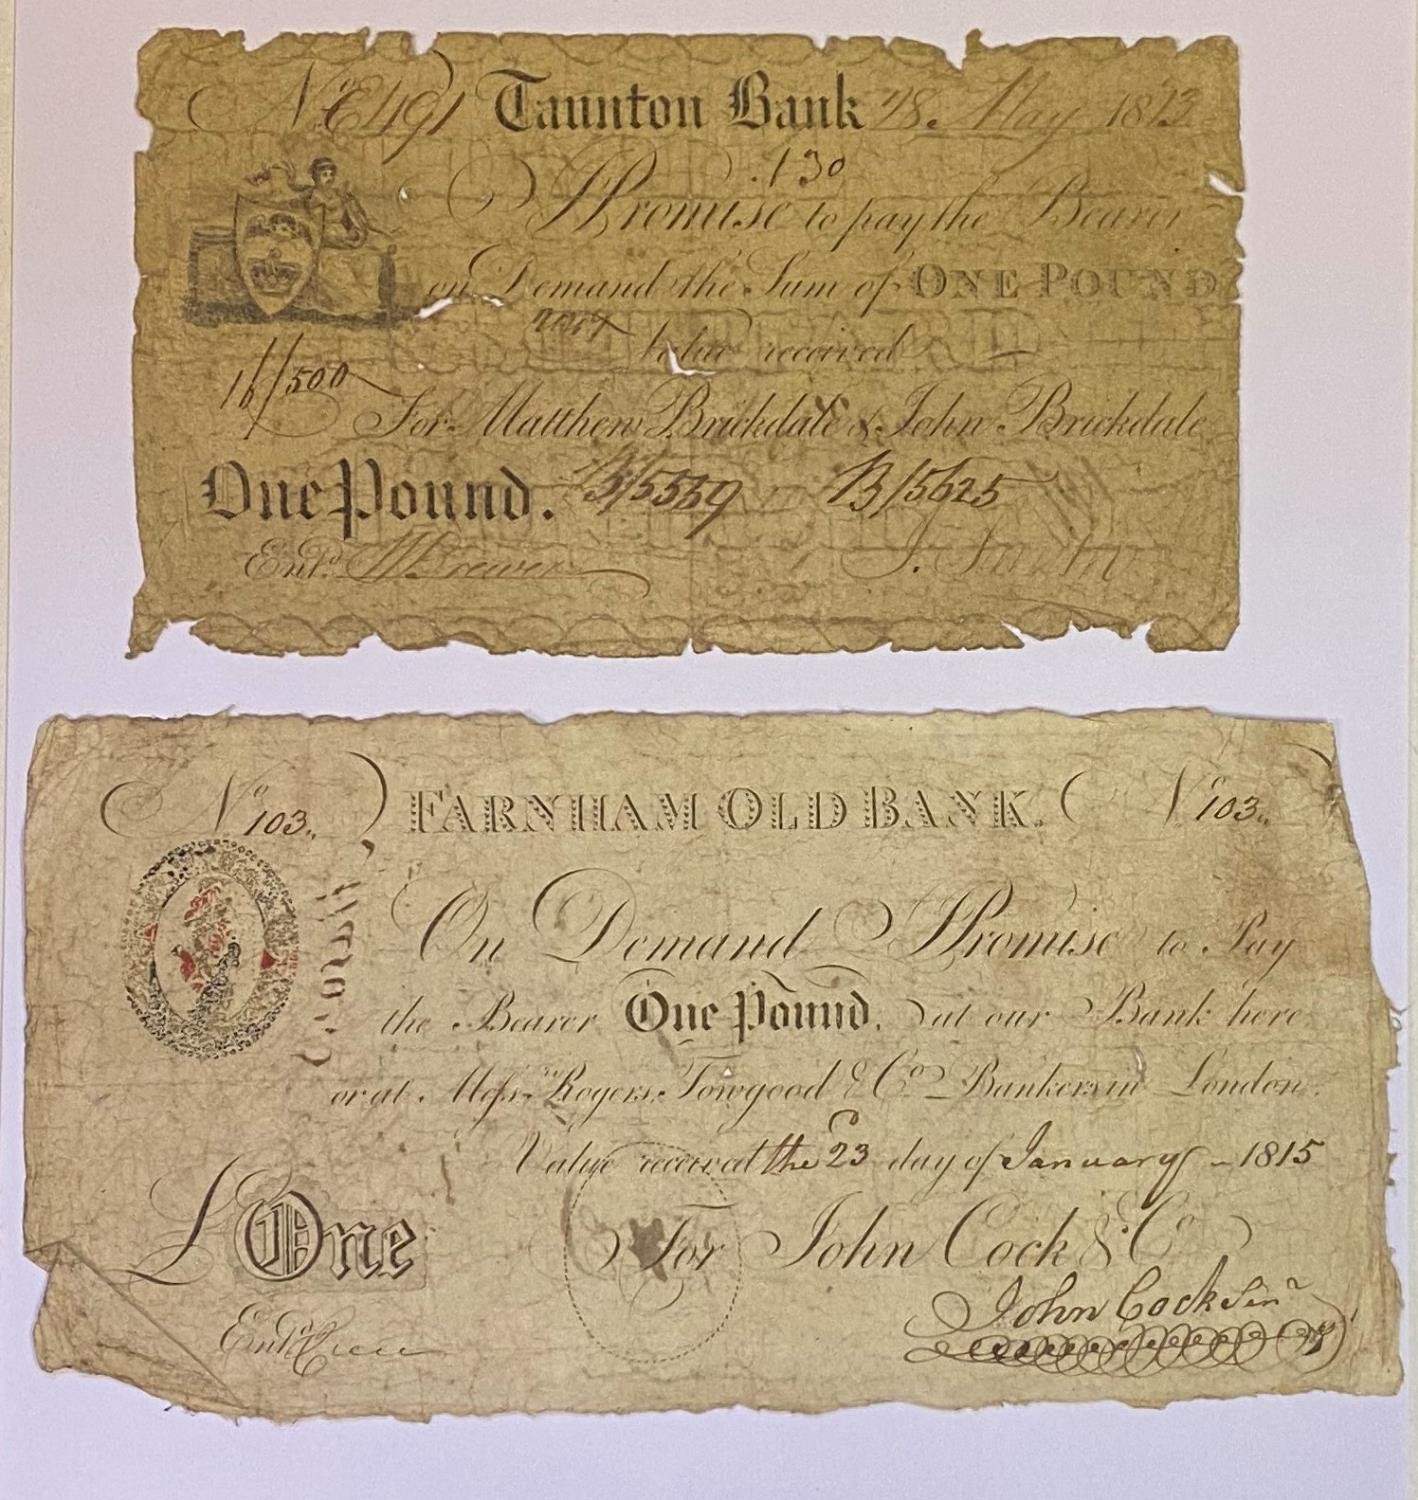 No E491 Taunton Bank 28. May 1813
.130
I Promise to pay the Bearer
on Demand the Sum of ONE POUND
Value received
16/500
For Matthew Brickdale & John Brickdale
One Pound. B/5559 B/5625
Entd.
No 103 FARNHAM OLD BANK. No 103
On Demand I Promise to Pay
the Bearer One Pound. at our Bank here
or at Messrs Rogers, Towgood & Co Bankers in London.
Value received the 23 day of January 1815
£ One For John Cock & Co
John Cock Senr
Entd